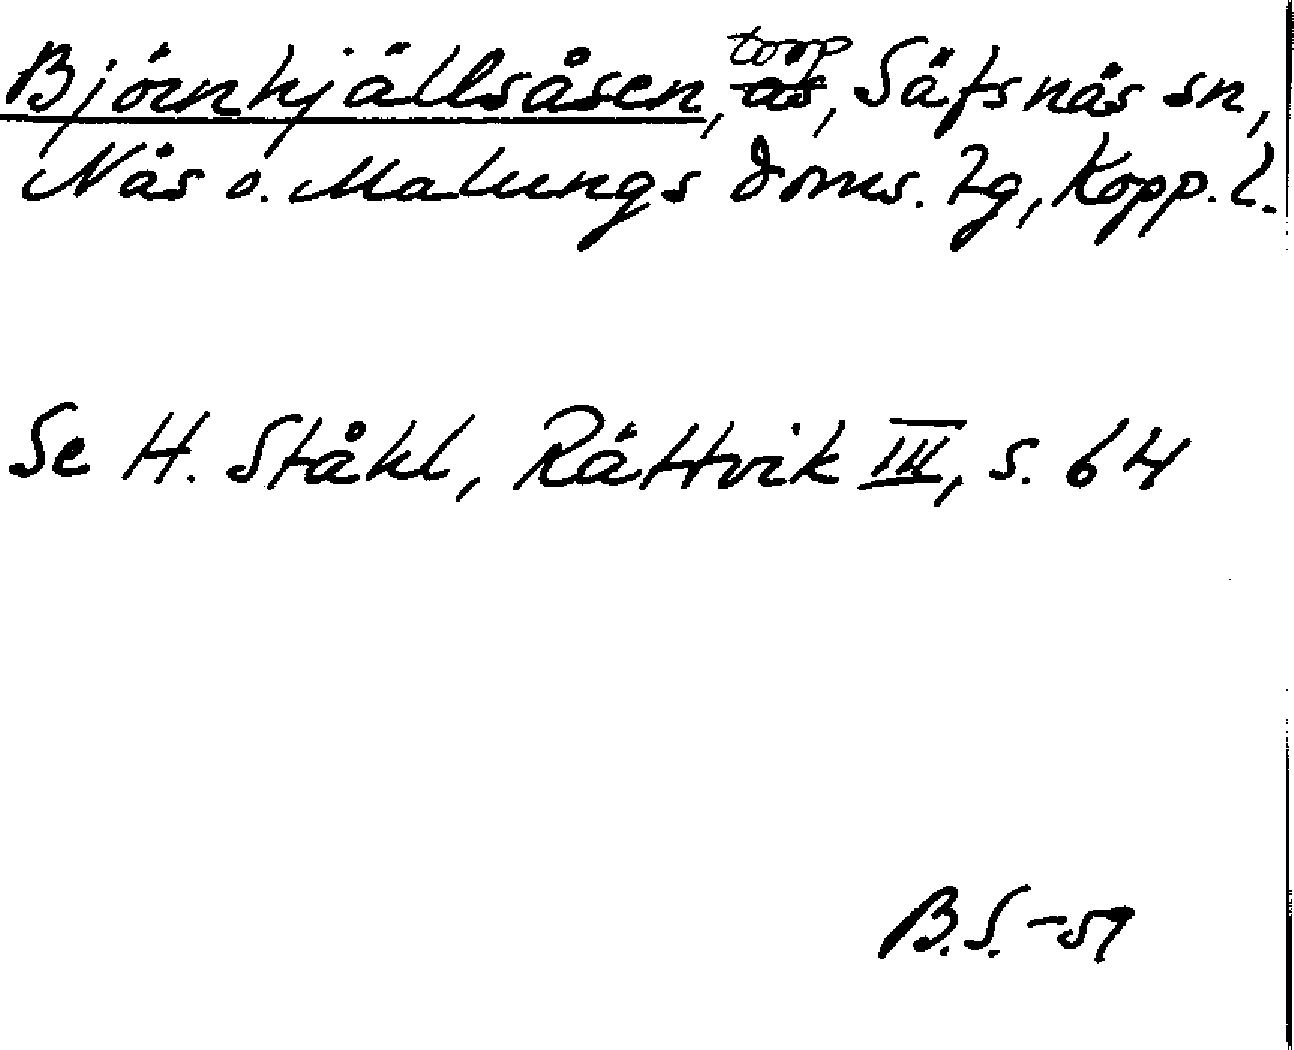 Björnhjällsåsen, torp ås, Säfsnäs sn,
Nås o. Malungs doms. Lg, Kopp. l.
Se H. Ståhl, Rättvik III, s. 64
B.S.-59